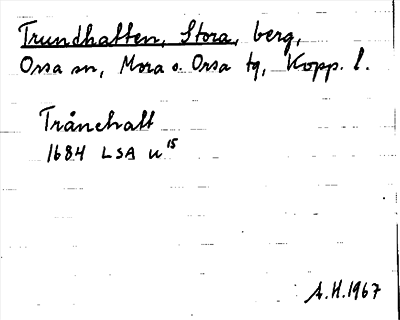 Trundhatten, Stora, berg,
Orsa sn, Mora o. Orsa tg, Kopp. l.
Trånehatt
1684 LSA U 15
A.H. 1967